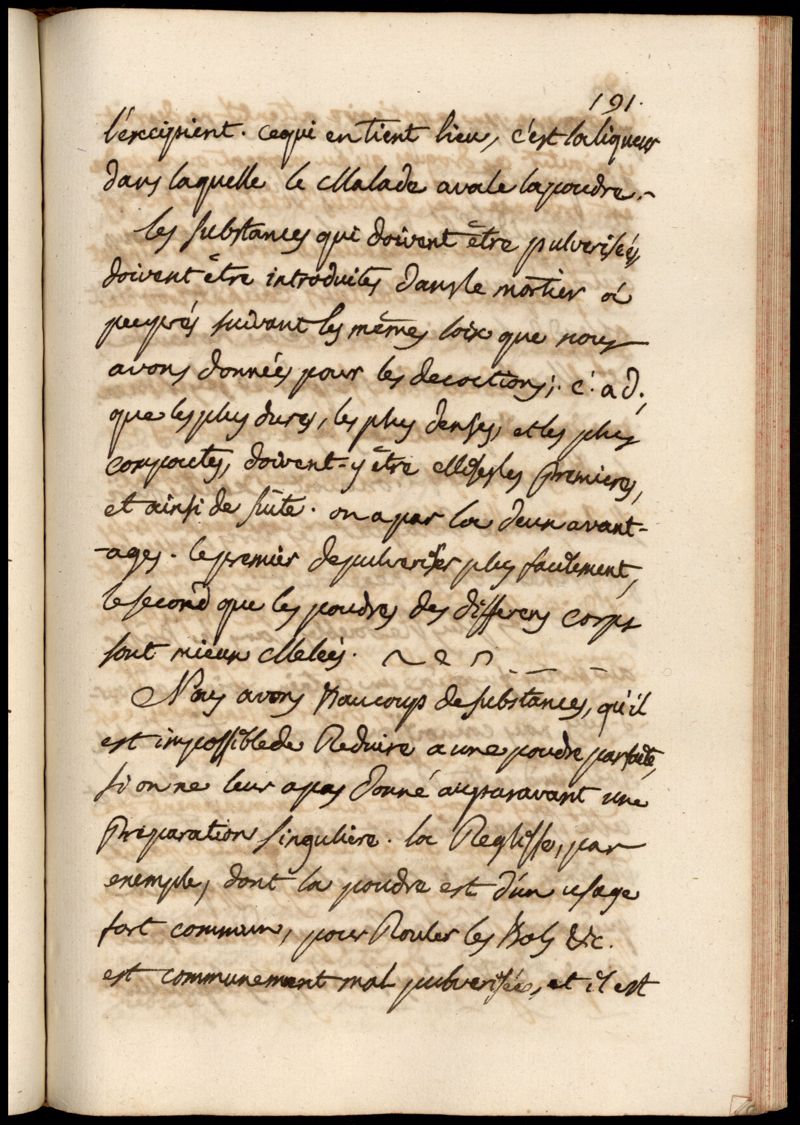 191.
l'excipient. ce qui en tient lieu, c'est la liqueur
dans laquelle le Malade avale la poudre.
les substances qui doivent être pulverisées,
doivent être introduites dans le mortier à
peuprés suivant les mêmes loix que nous
avons données pour les decoctions; c. a d.,
que les plus dures, les plus denses, et les plus
compactes, doivent-y être Mises les premieres,
et ainsi de suite. on a par la deux avant-
-ages. le premier de pulveriser plus facilement,
le second que les poudres des differens corps
sont mieux Melées.
Nous avons Beaucoup de substances, qu'il
est impossible de Reduire a une poudre parfaite,
si on ne leur a pas donné auparavant une
Preparation singuliere. la Reglisse, par
exemple, dont la poudre est d'un usage
fort commun, pour Rouler les Bols &c.
est communement mal pulverisée, et il est